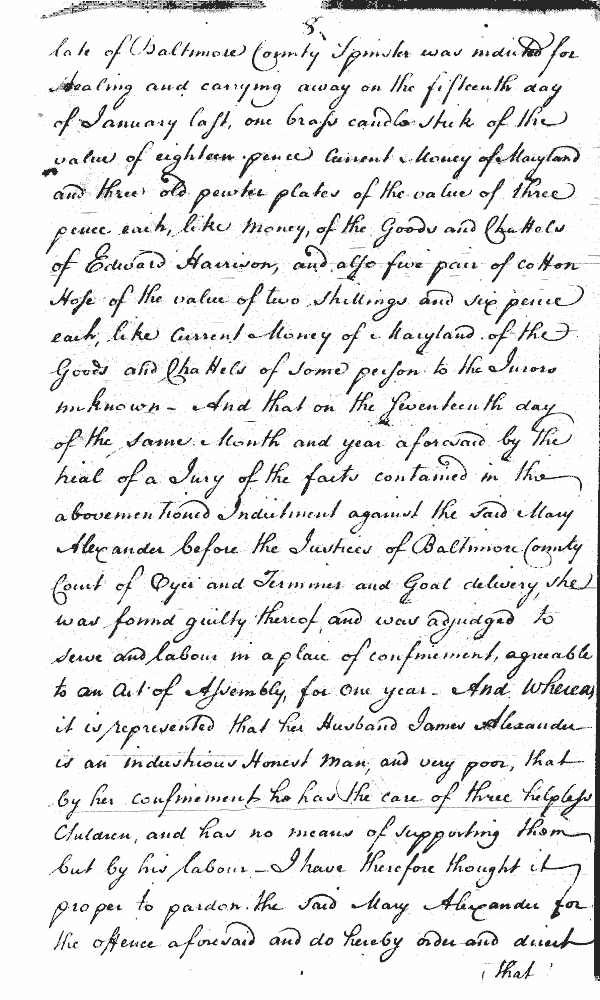 8
late of Baltimore County Spinster was indicted for
stealing and carrying away on the fifteenth day
of January last, one brass candle stick of the
value of eighteen pence Current Money of Maryland
and three old pewter plates of the value of three
pence each, like money, of the Goods and Chattels
of Edward Harrison, and also five pair of cotton
Hose of the value of two shillings and six pence
each, like Current Money of Maryland of the
Goods and Chattels of some person to the Jurors
unknown - And that on the seventeenth day
of the same Month and year aforesaid by the
trial of a Jury of the facts contained in the
abovementioned Indictment against the said Mary
Alexander before the Justices of Baltimore County
Court of Oyer and Terminer and Goal delivery, she
was found guilty thereof, and was adjudged to
serve and labour in a place of confinement, agreeable
to an Act of Assembly, for one year - And Whereas
it is represented that her Husband James Alexander
is an industrious Honest man, and very poor, that
by her confinement he has the care of three helpless
Children, and has no means of supporting them
but by his labour - I have therefore thought it
proper to pardon the said Mary Alexander for
the offence aforesaid and do hereby order and direct
that